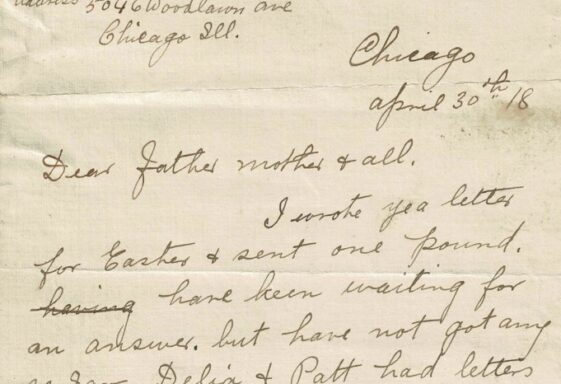 address 5046 Woodlawn ave
Chicago Ill.
Chicago
april 30th /18
Dear Father mother & all.
I wrote yea letter
for Easter & sent one pound.
having have keen waiting for
an answer. but have not got any
as far Delia & Patt had letters